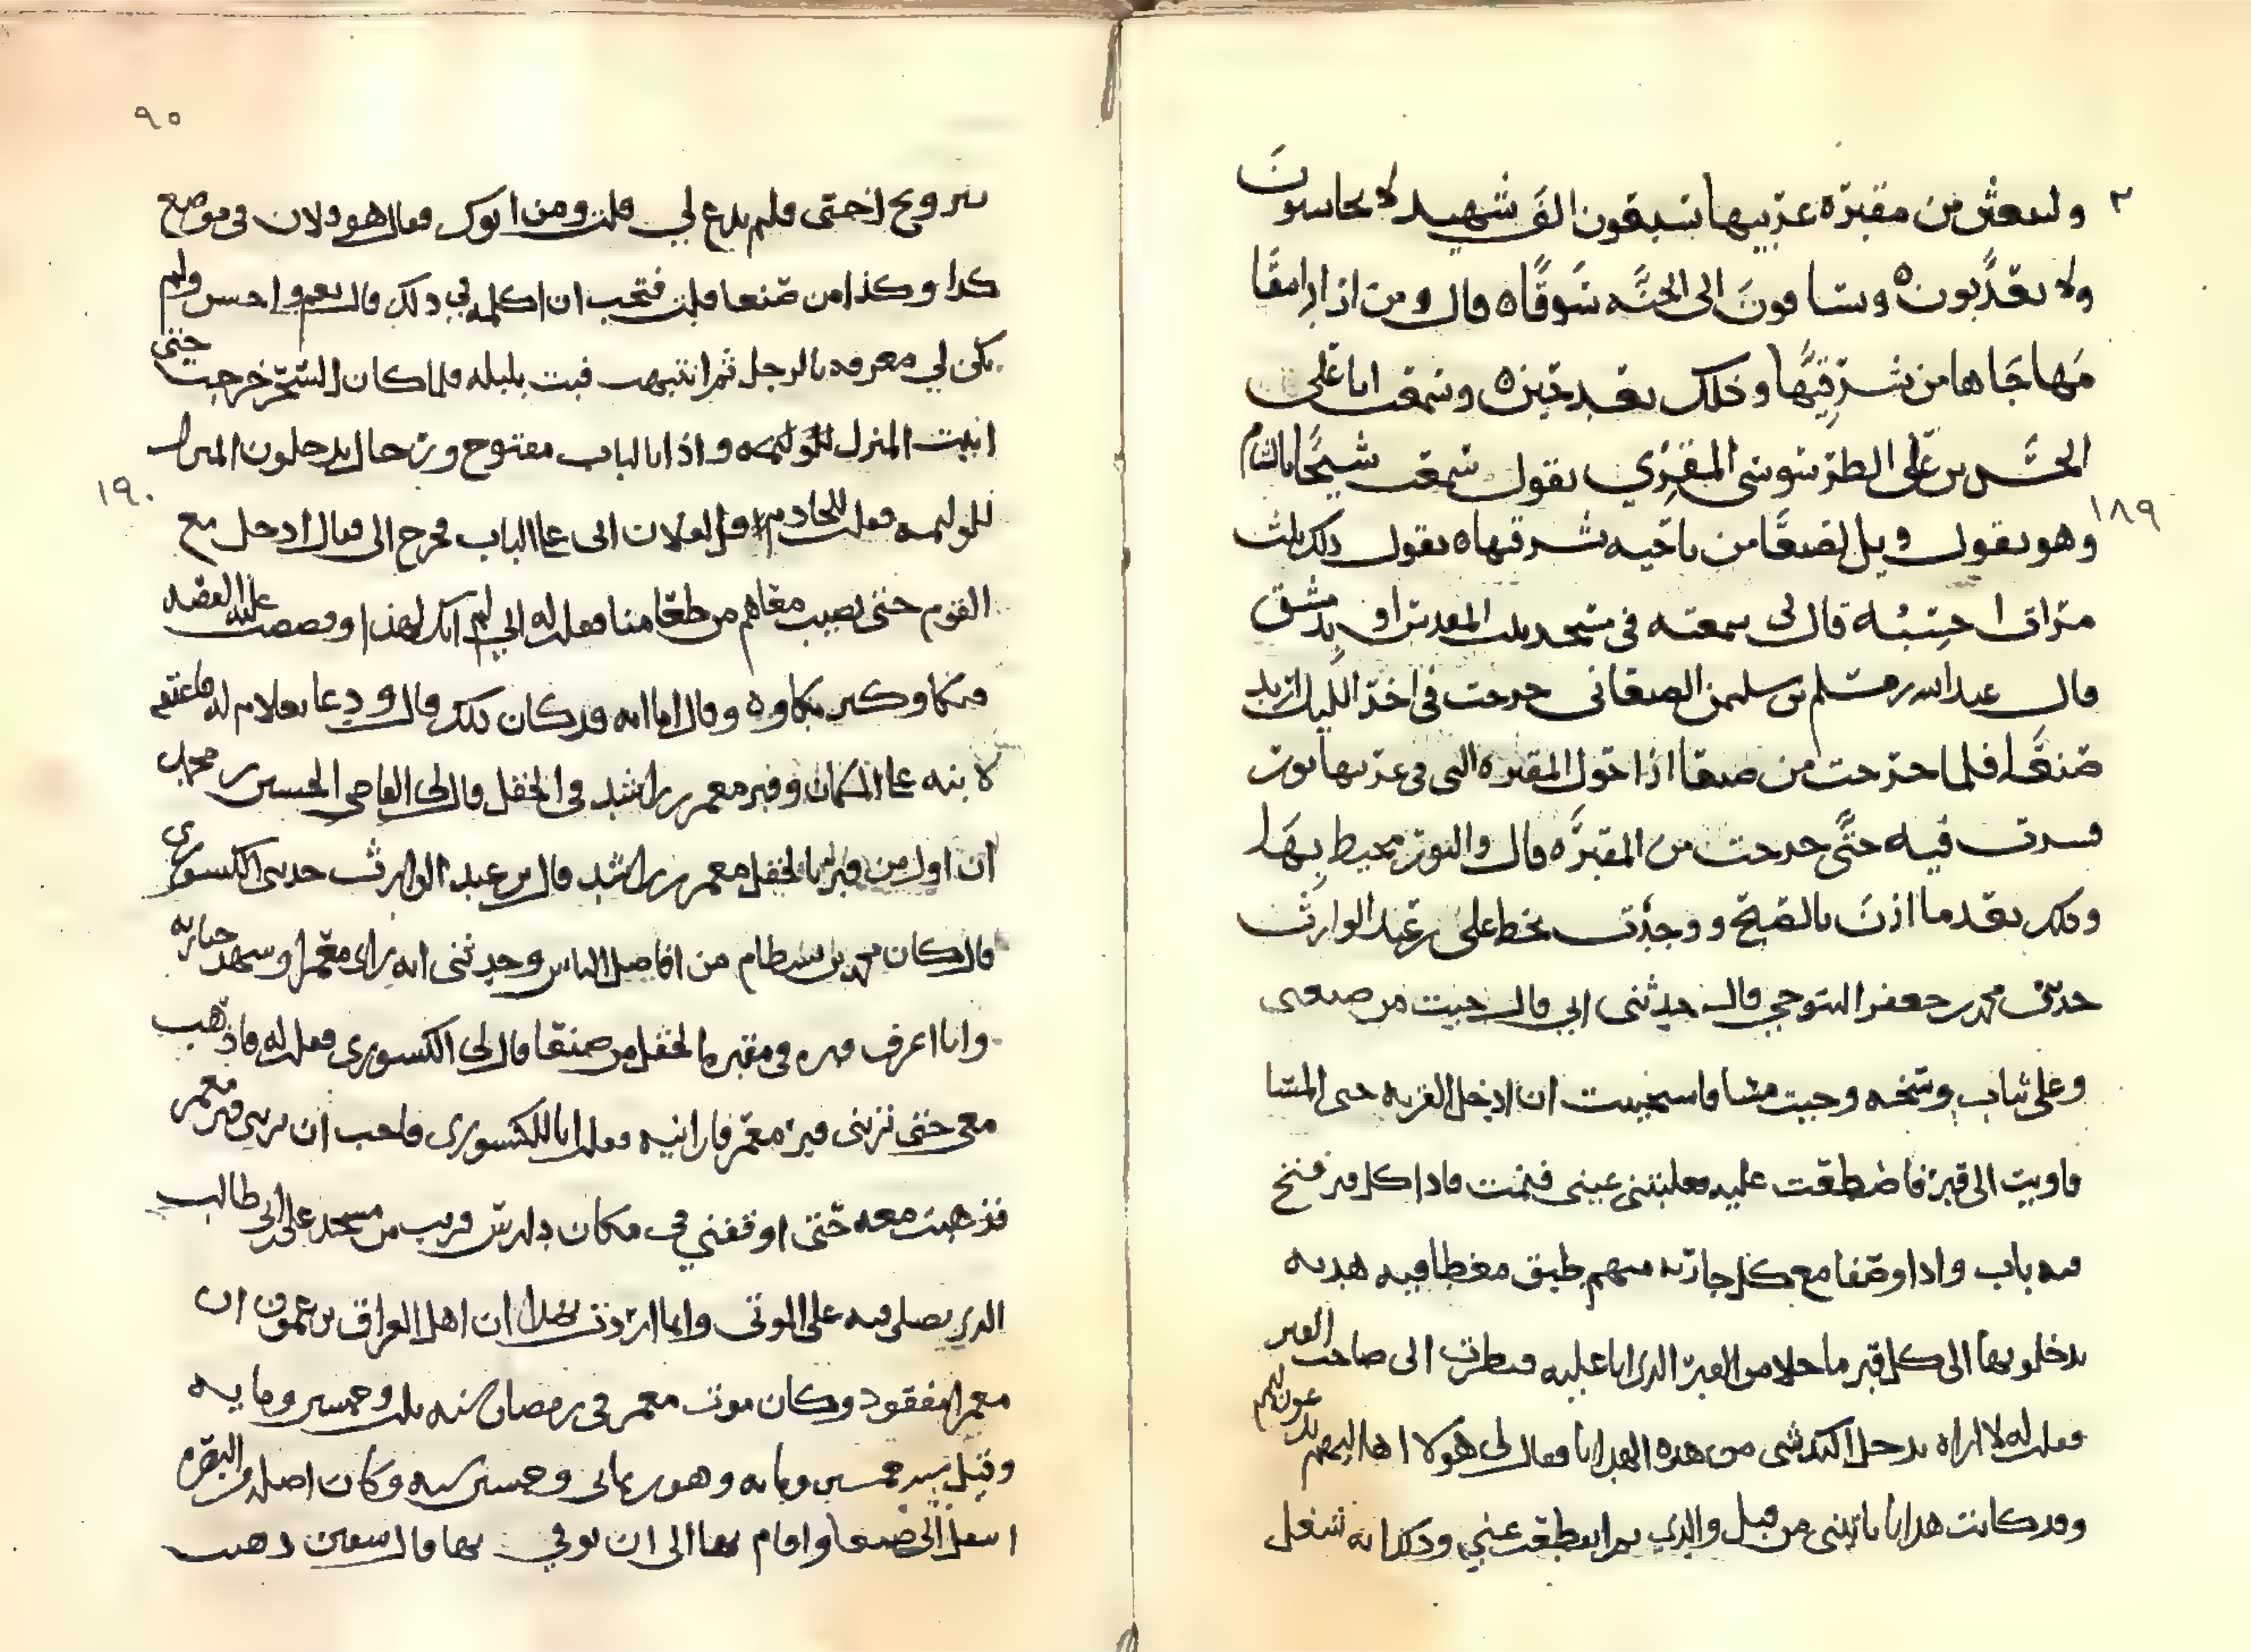 ٢ وليبعثن من مقبرة غربيها سبعون الف شهيد لا يحاسبون
ولا يعذبون ويساقون الى الجنة سوقا قال ومن ارادها
مهاجاها من شرقيها وذلك بعد حين وسمعت ابا على
الحسن بن على الطرسوسى المقرى يقول سمعت شيخا بالشام
١٨٩
وهو يقول ويل لصنعا من ناحيه شرقها يقول ذلك ثلث
مرات احسبه قال لى سمعته فى مسجد بيت المقدس او بدمشق
قال عبد الله بن مسلم بن سليمن الصنعانى خرجت فى اخر الليل اريد
صنعا فلما خرجت من صنعا اذا حول المقبره التى فى غربيها نور
فسرت فيه حتى خرجت من المقبره قال والنور محيط بها
وذلك بعدما اذن بالصبح ووجدت بخط على بن عبد الوارث
حدثنى محمد بن جعفر السوحي قال حدثنى ابي قال جيت من صنعى
وعلى ثياب وسخه وجيت مسا فاستحييت ان ادخل القريه حتى المسا
فاويت الى قبر فاضطجعت عليه فغلبتنى عينى فنمت فاذا كل قبر فتح
فيه باب واذا وصفا مع كل جاريه منهم طبق مغطا فيه هديه
يدخلونها الى كل قبر ما خلا من القبر الذى انا عليه فنظرت الى صاحب القبر
فقلت له لا اراه يدخل اليك شى من هذه الهدايا فقال لى هولا اهاليهم يدعون لهم
وقد كانت هدايا تاتينى من قبل والدي ثم انقطعت عني وذكر انه شغل
٩٠
بتزويج اختى فلم يدع لي قلت ومن ابوك فقال هو فلان فى موضع
كذا وكذا من صنعا قلت فتحب ان اكلمه في ذلك قال نعم واحسن ولم
يكن لي معرفه بالرجل ثم انتبهت فبت بليله فلما كان السحر خرجت حتى
اتيت المنزل للوليمه واذا بالباب مفتوح ورجال يدخلون المنزل
١٩٠
للوليمه فقلت للخادم قل لفلان انى على الباب فخرج الى فقال ادخل مع
القوم حتى تصيب معاهم من طعامنا فقلت له انى لم اتك لهذا وقصصت عليه القصه
فبكا وكثر بكاوه وقال اما انه قد كان ذلك قال ودعا بغلام له فاعتقه
لابنه على المكان وقبر معمر بن راشد فى الحقل قال لى القاضى الحسين بن محمد
ان اول من قبر بالحقل معمر بن راشد قال بن عبد الوارث حدثنى الكشورى
قال كان محمد بن بسطام من افاضل الناس وحدثنى انه راى معمرا وشهد جنازته
وانا اعرف قبره فى مقبره بالحقل من صنعا قال لى الكشورى فقلت له فاذهب
معى حتى ترينى قبر معمر فارانيه فقلت انا للكشورى فاحب ان ترينى قبر معمر
فذهبت معه حتى اوقفني فى مكان دارس قريب من مسجد على بن ابى طالب
الذي يصلى فيه على الموتى وانما اردت بهذا ان اهل العراق يزعمون ان
معمرا مفقود وكان موت معمر فى رمضان سنه ثلث وخمسين ومايه
وقيل سنه خمسين ومايه وهو بن ثمانى وخمسين سنه وكان اصله من البصره
انتقل الى صنعا واقام بها الى ان توفي بها قال سفين ذهب